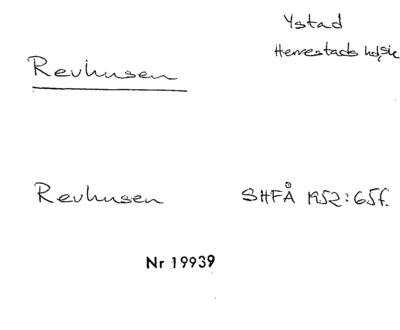 Ystad
Herrestads hd, Sk
Revhusen
Revhusen SHFÅ 1952:65f.
Nr 19939